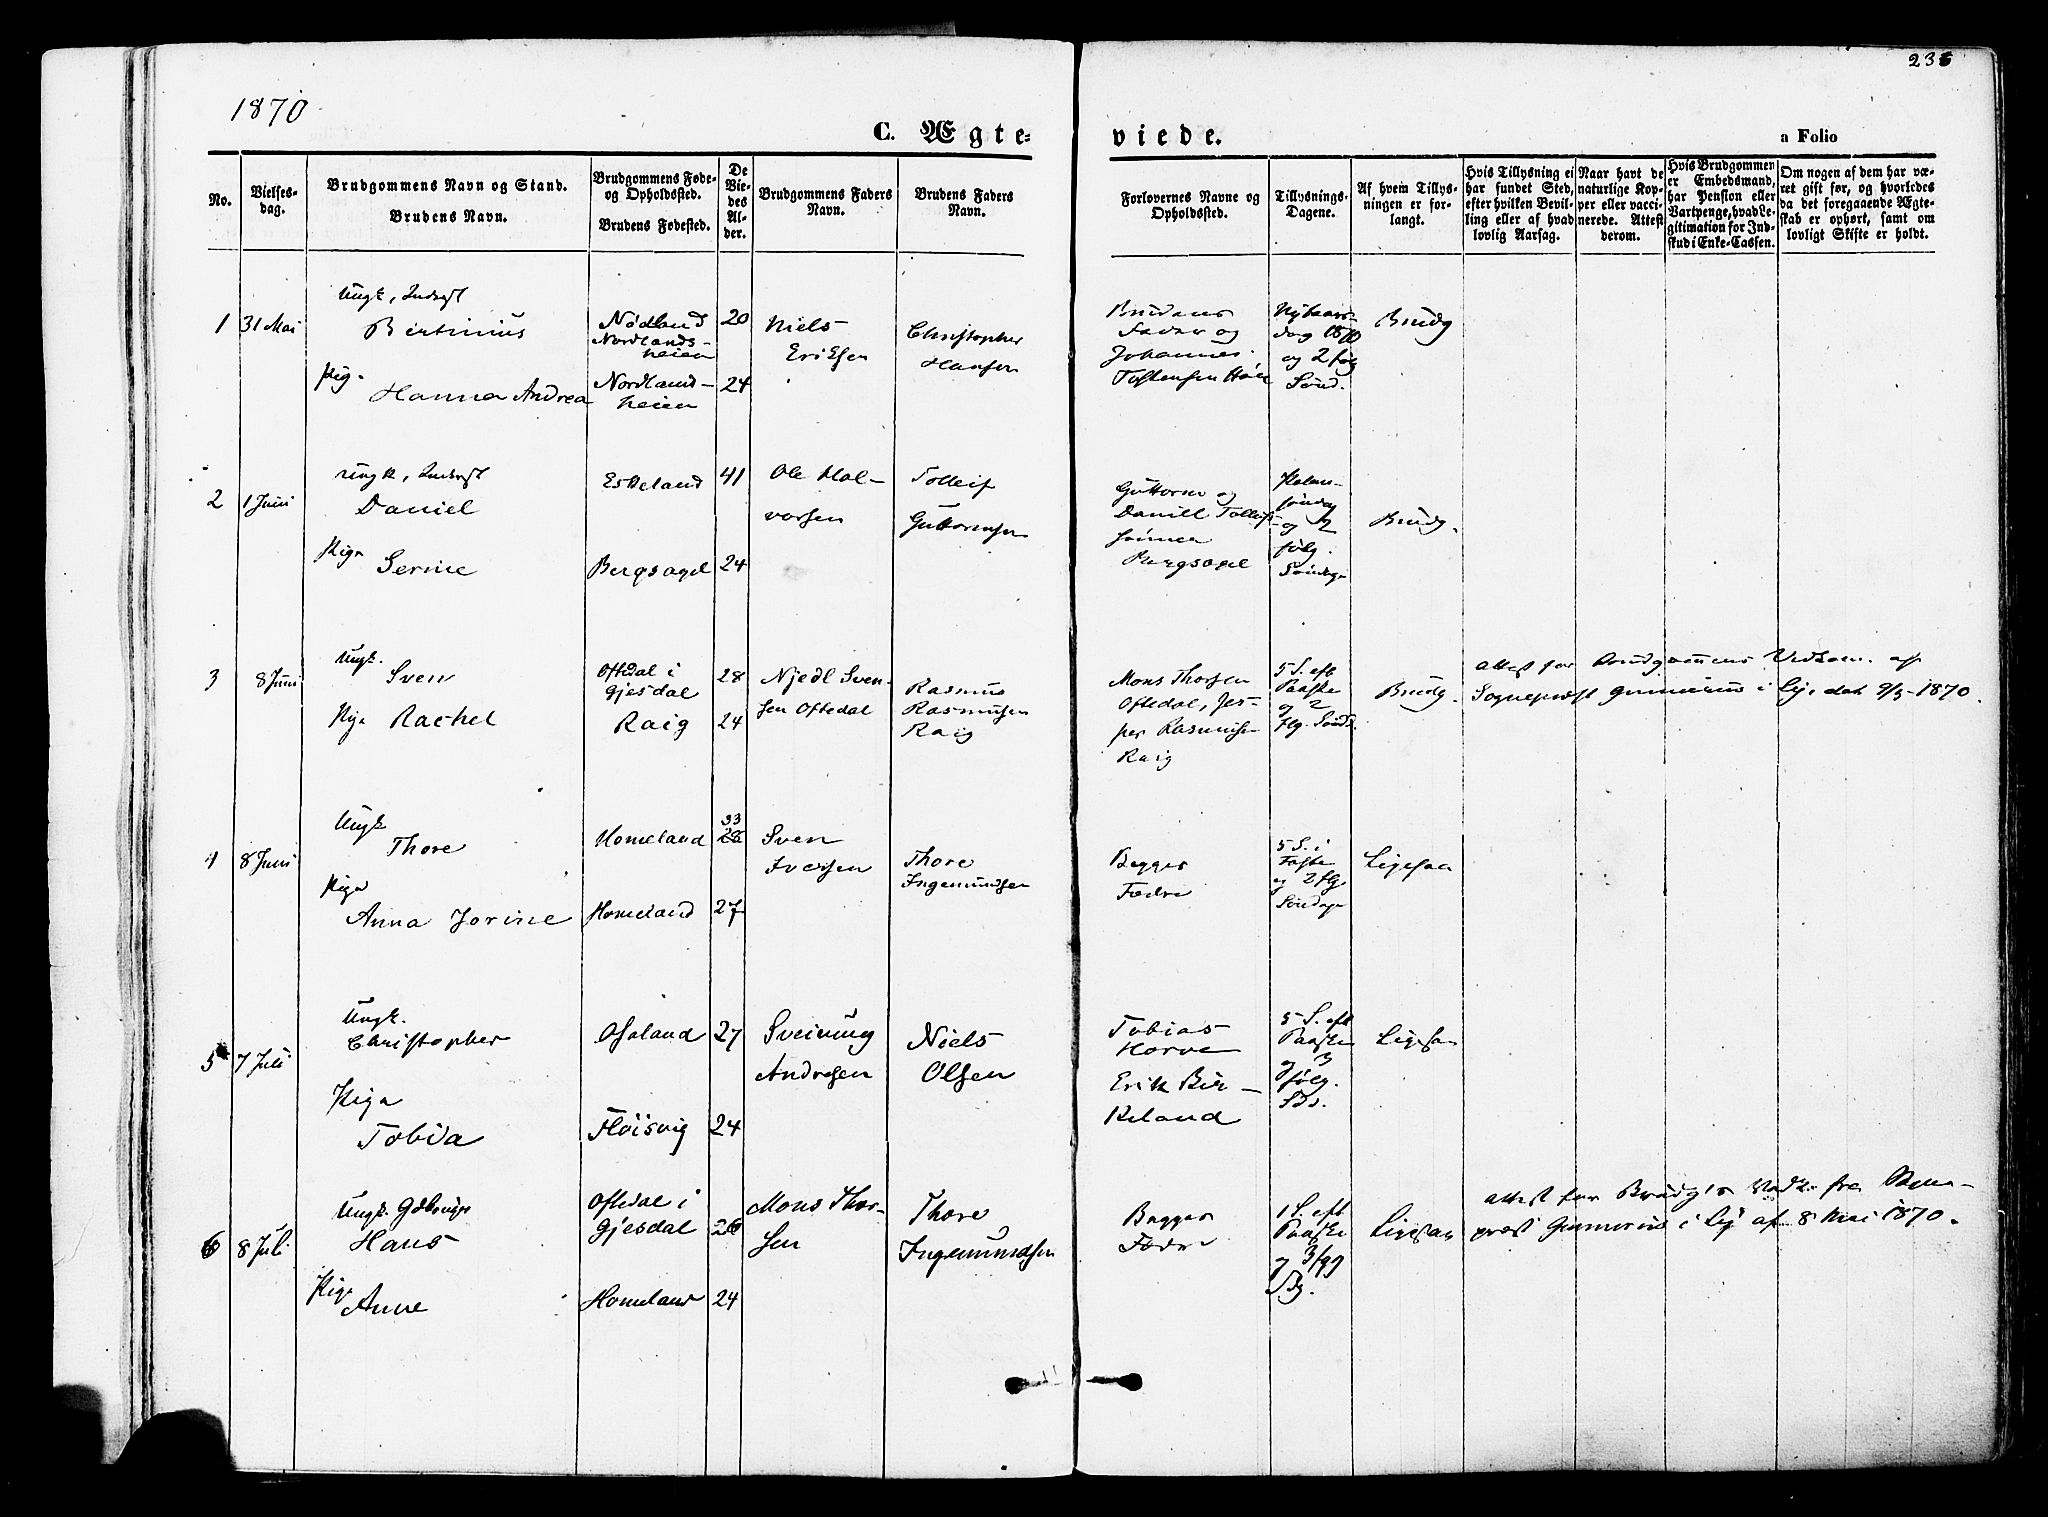 1870
236
C. Ægte-
viede.
a Folio
No.
Vielses-
dag.
Brudgommens Navn og Stand.
Brudens Navn.
Brudgommens Føde-
og Opholdssted.
Brudens Fødested.
De
Vie-
des
Al-
der.
Brudgommens Faders
Navn.
Brudens Faders
Navn.
Forlovernes Navne og
Opholdssted.
Tillysnings-
Dagene.
Af hvem Tillys-
ningen er for-
langt.
Hvis Tillysning ei
har fundet Sted,
efter hvilken Bevil-
ling eller af hvad
lovlig Aarsag.
Naar havt de
naturlige Kop-
per eller vacci-
nerede. Attest
derom.
Hvis Brudgommen
er Embedsmand,
har Pension eller
Vartpenge, hvad Le-
gitimation for Ind-
skud i Enke-Cassen.
Om nogen af dem har væ-
ret gift før, og hvorledes
da det foregaaende Ægte-
skab er ophørt, samt om
lovligt Skifte er holdt.
1 31 Mai
Ungk, Indsgt
Bertinius
Pige
Hanna Andrea
Nødland
Nordlands-
heien
Nordland-
heien
20
24
Niels
Eriksen
Christopher
Hansen
Brudens
Fader og
Johannes
Tostensen
Nytaars-
dag 1870
og 2 følg
Sønd.
Brudg
2 1 Juni
Ungk, Indsgt
Daniel
Pige
Serine
Eskeland
Bergsagel
41
24
Ole Hal-
vorsen
Tolleif
Guttormsen
Guttorm og
Daniel
Sønner
Bergsagel
Palme-
søndag
og 2
følg.
Søndage
Brudg.
3 8 Juni
Ungk.
Sven
Pige Rachel
Oftedal i
Gjesdal
Raig
28
24
Njedl Sven-
sen Oftedal
Rasmus
Rasmussen
Raig
Mons Thorsen
Oftedal, Jes-
per Rasmussen
Raig
5 S. eft
Paaske
og 2
flg. Sønd.
Brudg.
Attest for Brudgommens Vedkom. af
Sognepræst Gunnerius i Lye dat 9/5-1870.
4 8 Juni
Ungk
Thore
Pige
Anna Jorine
Homeland
Homeland
33
28
27
Sven
Iversen
Thore
Ingemundsen
Begges
Fædre
5 S. i
Faste
og 2 flg.
Søndage
Ligesaa
5 7 Juli
Ungk.
Christopher
Pige
Tobia
Osaland
Fløisvig
27
24
Sveinung
Andresen
Niels
Olsen
Tobias
Horve
Erik Bir-
keland
5 S. eft
Paaske
og 3
følg.
Sds.
Ligesaa
6 8 Juli.
Ungk. Gdbruger
Hans
Pige
Anne
Oftedal i
Gjesdal
Homeland
26
24
Mons Thor-
sen
Thore
Ingemundsen
Begges
Fædre
1 S. eft
Paaske
og 3 flg
Sdg.
Ligesaa
Attest for Brudg's Vedk. fra
præst Gunnerius i Lye af 8 Mai 1870.